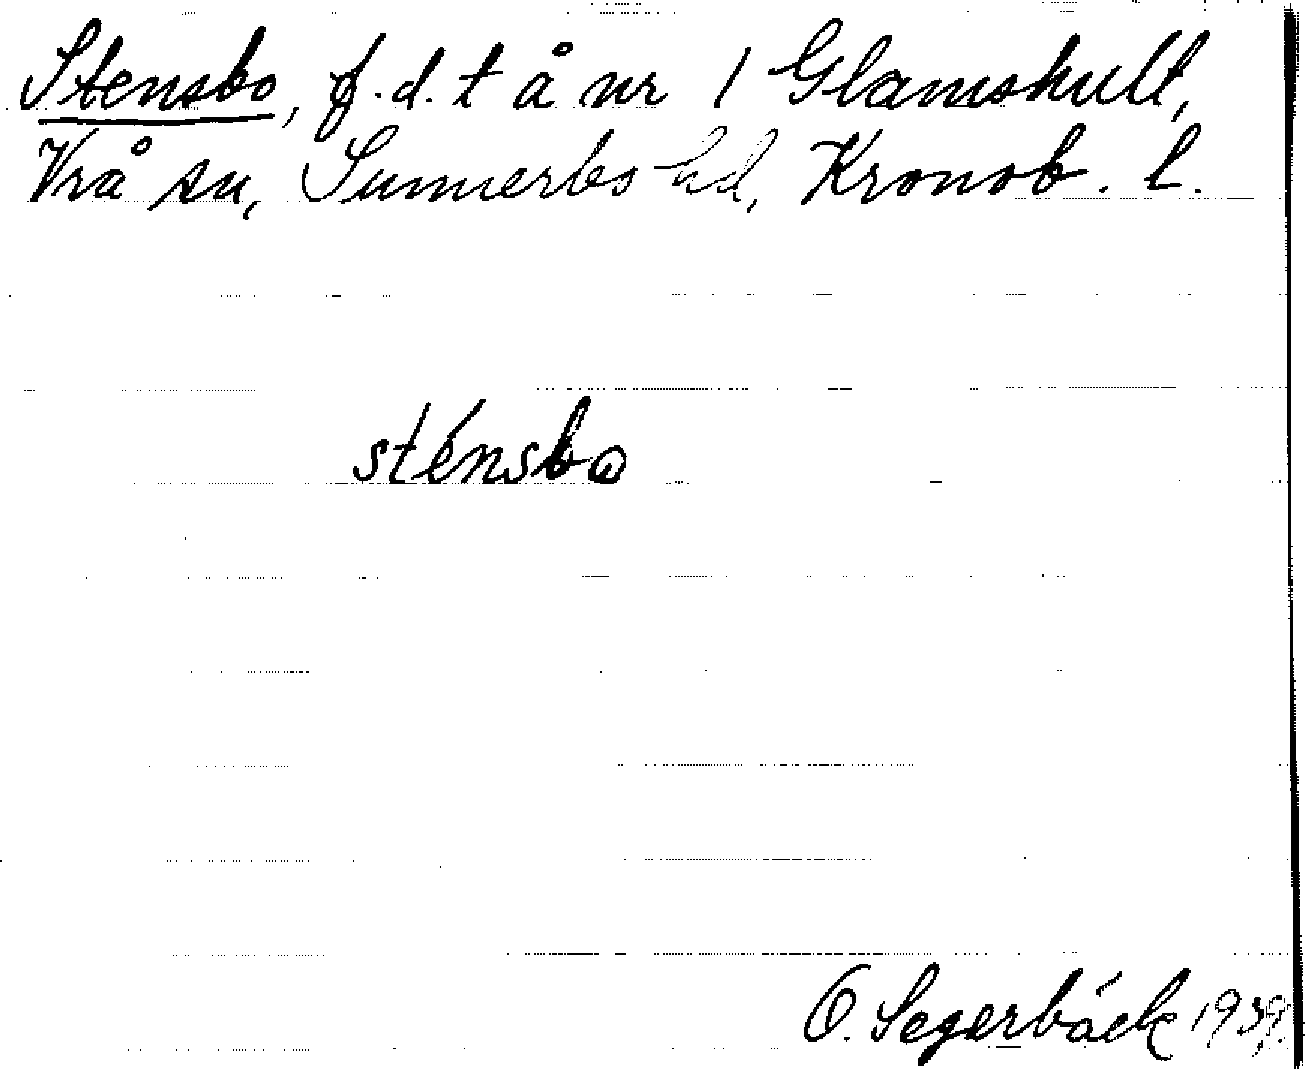 Stensbo, f.d. t å nr 1 Glamshult,
Vrå sn, Sunnerbo hd, Kronob. l.
sténsbo
O. Segerbäck 1939.